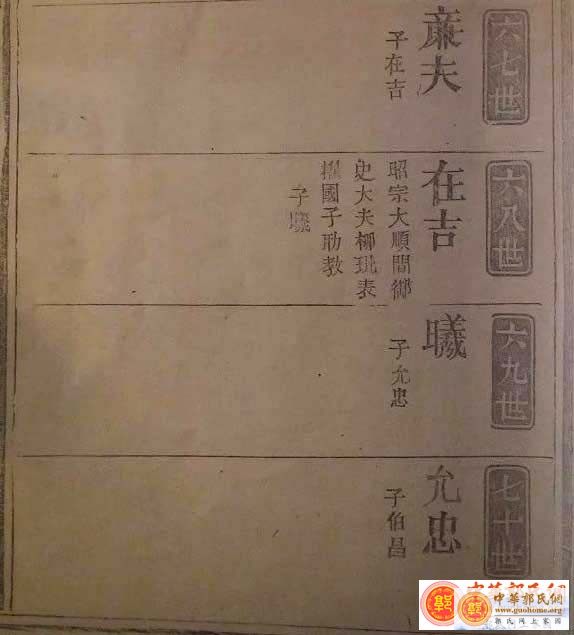 六七世
廉夫
子在吉
六八世
在吉
昭宗大順間御
史大夫柳玭表
擢國子助教
子曦
六九世
曦
子允忠
七十世
允忠
子伯昌
中華郭氏網
www.guohome.org
郭氏網上家園
郭